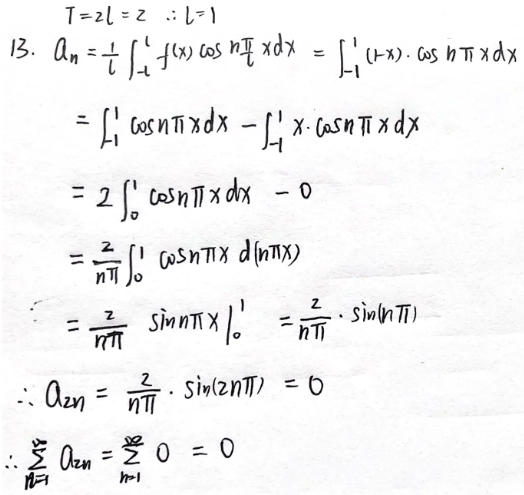 T=2l=2 ∴l=1
13. aₙ = 1/l ∫_{-l}^{l} f(x) cos nπ/l xdx = ∫_{-1}^{1} (1-x)·cos nπxdx
= ∫_{-1}^{1} cosnπxdx - ∫_{-1}^{1} x·cosnπxdx
= 2∫_{0}^{1} cosnπxdx - 0
= 2/nπ ∫_{0}^{1} cosnπx d(nπx)
= 2/nπ sinnπx |_{0}^{1} = 2/nπ · sin(nπ)
∴ a₂ₙ = 2/nπ · sin(2nπ) = 0
∴ ∑_{n=1}^{∞} a₂ₙ = ∑_{n=1}^{∞} 0 = 0